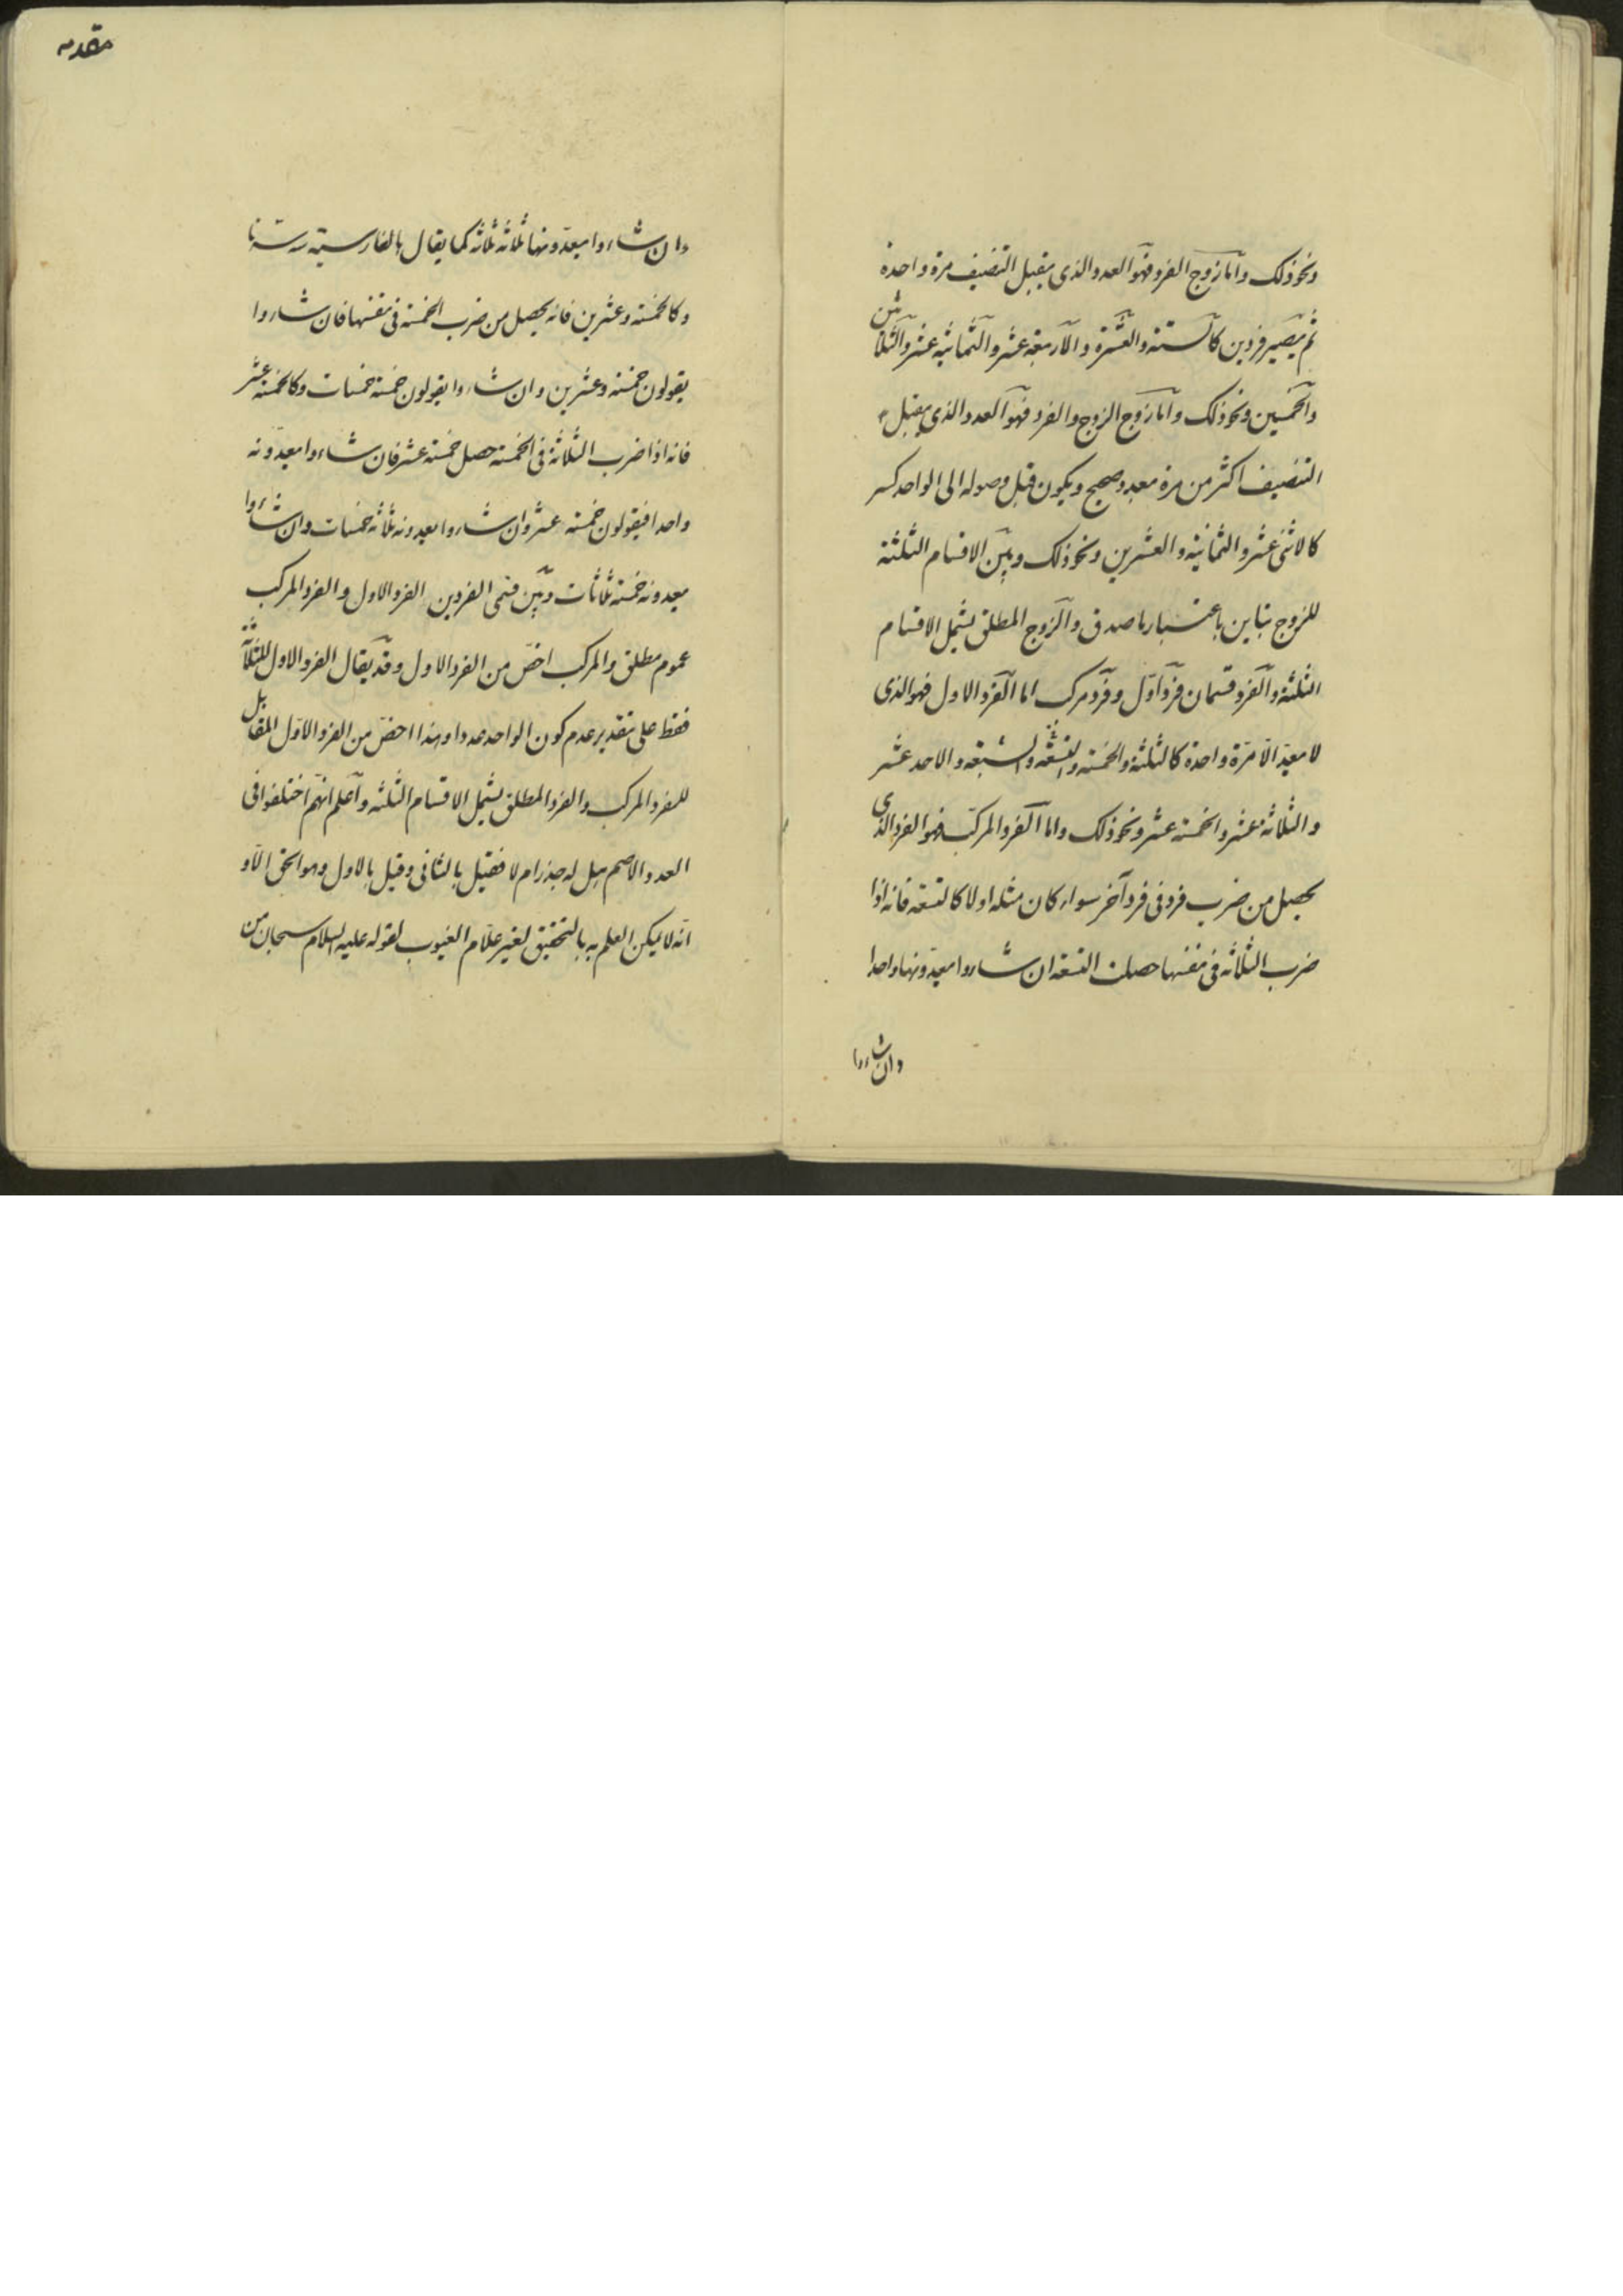 ونحو ذلك واما زوج الفرد فهو العدد الذى يقبل التنصيف مرة واحدة
ثم يصير فردين كالستة والعشرة والاربعة عشر والثمانية عشر والثلاثين
والخمسين ونحو ذلك واما زوج الزوج والفرد فهو العدد الذى يقبل
التنصيف اكثر من مرة بعدد صحيح ويكون قبل وصوله الى الواحد كسر
كالاثنى عشر والثمانية والعشرين ونحو ذلك وبين الاقسام الثلثة
للزوج تباين باعتبار ما صدق والزوج المطلق يشمل الاقسام
الثلثة والفرد قسمان فرد اول وفرد مركب اما الفرد الاول فهو الذى
لا يعد الا مرة واحدة كالثلثة والخمسة والتسعة والسبعة والاحد عشر
والثلاثة عشر والخمسة عشر ونحو ذلك واما الفرد المركب فهو الفرد الذى
يحصل من ضرب فرد فى فرد آخر سواء كان مثله اولا كالتسعة فانه اذا
ضرب الثلاثة فى نفسها حصلت التسعة ان شاءوا يعدونها واحدا
وان شاءوا
مقدمه
وان شاءوا يعدونها ثلاثة ثلاثة كما يقال بالفارسية سه سه تا
وكالخمسة وعشرين فانه يحصل من ضرب الخمسة فى نفسها فان شاءوا
يقولون خمسة وعشرين وان شاءوا يقولون خمسة خمسات وكالخمسة عشر
فانه اذا ضرب الثلاثة فى الخمسة حصل خمسة عشر فان شاءوا يعدونه
واحدا فيقولون خمسة عشر وان شاءوا يعدونه ثلاثة خمسات وان شاءوا
يعدونه خمسة ثلاثات وبين قسمى الفردين الفرد الاول والفرد المركب
عموم مطلق والمركب اخص من الفرد الاول وقد يقال الفرد الاول للثلاثة
فقط على تقدير عدم كون الواحد عددا وهذا اخص من الفرد الاول المقابل
للفرد المركب والفرد المطلق يشمل الاقسام الثلثه واعلم انهم اختلفوا فى
العدد الاصم هل له جذر ام لا فقيل بالثانى وقيل بالاول وهو الحق الا و
انه لا يمكن العلم به بالتحقيق لغير علام الغيوب لقوله عليه السلام سبحان من